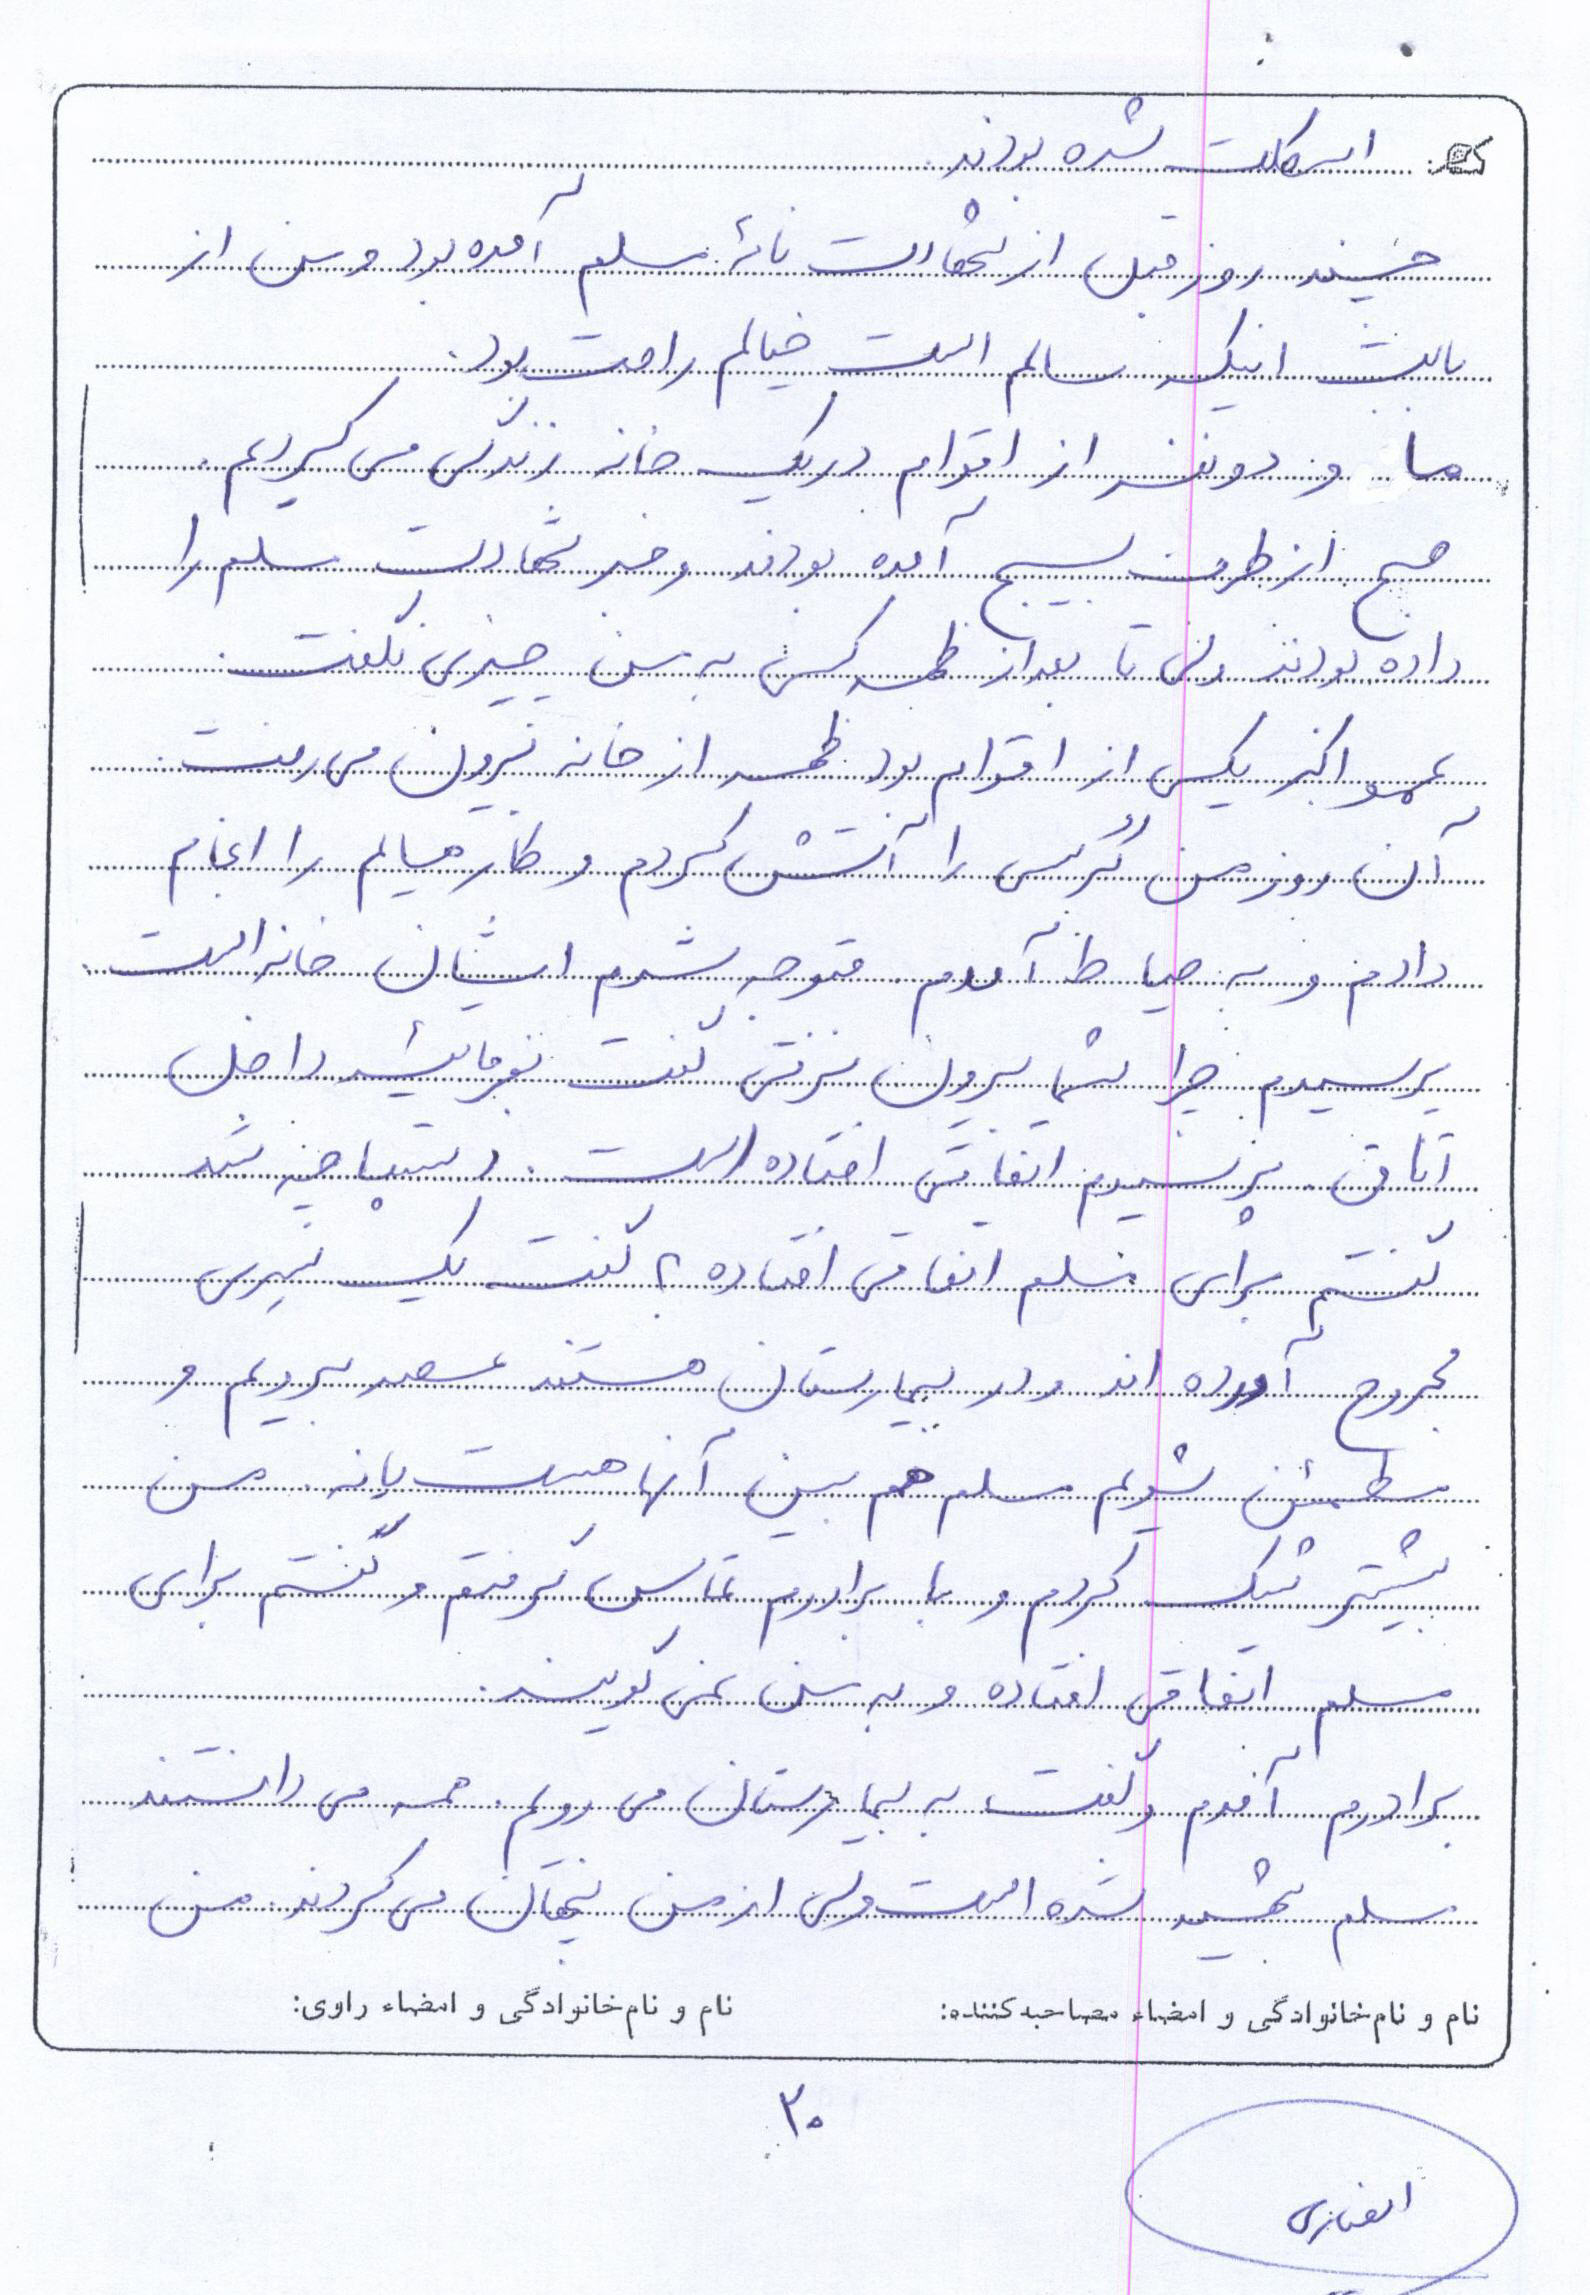 اسکلت شده بودند.
چند روز قبل از شهادت نامهٔ مسلم آمده بود و من از
بابت اینکه سالم است خیالم راحت بود.
ما و دو نفر از اقوام در یک خانه زندگی می کردیم.
صبح از طرف بسیج آمده بودند و خبر شهادت مسلم را
داده بودند ولی تا بعد از ظهر کسی به من چیزی نگفت.
عمو اکبر یکی از اقوام بود ظهر از خانه بیرون می رفت.
آن روز من گرسی را آتش کردم و کارهایم را انجام
دادم و به حیاط آمدم متوجه شدم ایشان خانه است.
پرسیدم چرا شما بیرون نرفتی گفت بفرمائید داخل
اتاق. پرسیدم اتفاقی افتاده است. دستپاچه شد
گفتم برای مسلم اتفاقی افتاده؟ گفت یک سری
مجروح آورده اند و در بیمارستان هستند عصر برویم و
مطمئن شویم مسلم هم بین آنها هست یا نه. من
بیشتر شک کردم و با برادرم تماس گرفتم و گفتم برای
مسلم اتفاقی افتاده و به من نمی گویند.
برادرم آمدم و گفت به بیمارستان می رویم. همه می دانستند
مسلم شهید شده است ولی از من پنهان می کردند. من
نام و نام‌خانوادگی و امضاء مصاحبه‌کننده: نام و نام‌خانوادگی و امضاء راوی:
۲۰